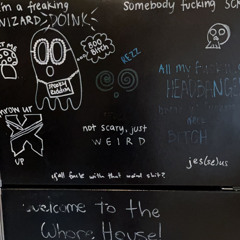 I'm a freaking
WIZARD
DOINK
Somebody fucking SC
BOO
Bitch
SPOOKY
REZZ
All my fu
HEADBANGE
BITCH
throw ur
X
UP
not scary, just
WEIRD
jes(se)us
y'all fuck with that weird shit?
welcome to the
Whore House!